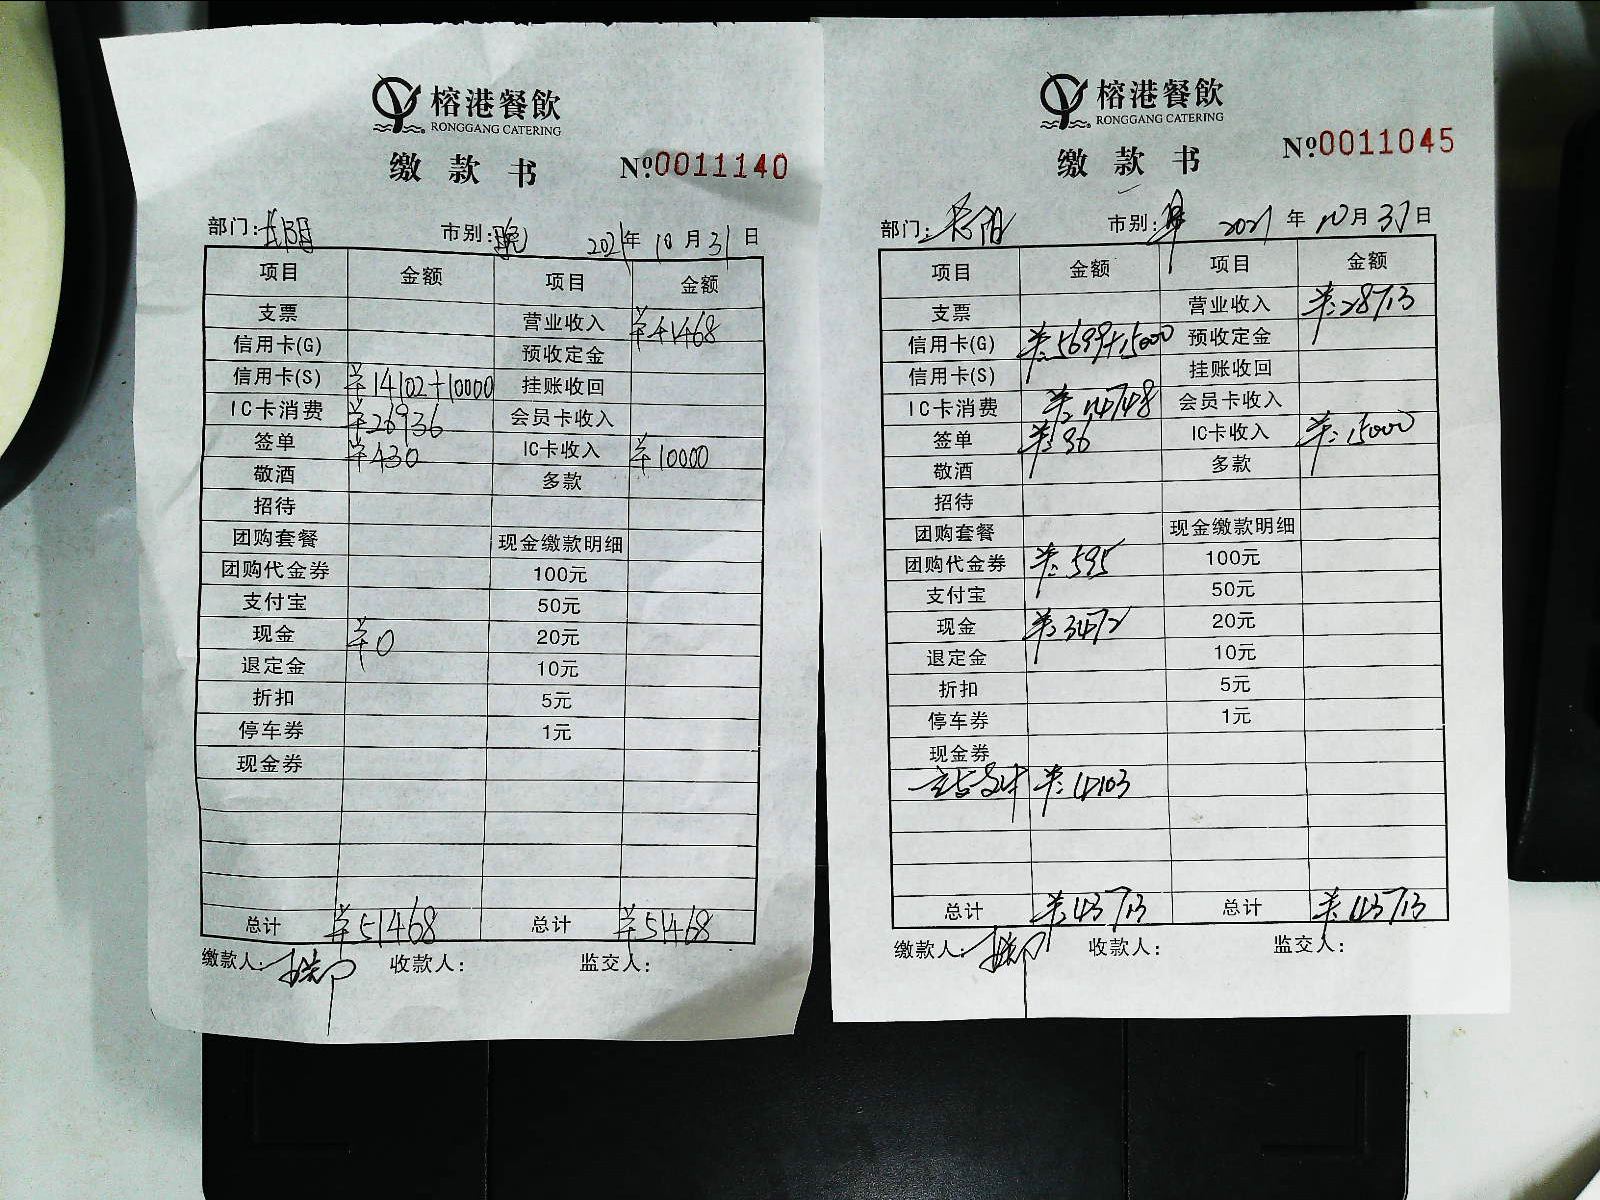 榕港餐飲
RONGGANG CATERING
缴款书 №0011140
部门: 长阳 市别: 晚 2021年10月31日
项目 金额 项目 金额
支票 营业收入 ¥41468
信用卡(G) 预收定金
信用卡(S) ¥14102+10000 挂账收回
IC卡消费 ¥26936 会员卡收入
签单 ¥430 IC卡收入 ¥10000
敬酒 多款
招待
团购套餐 现金缴款明细
团购代金券 100元
支付宝 50元
现金 ¥0 20元
退定金 10元
折扣 5元
停车券 1元
现金券
总计 ¥51468 总计 ¥51468
缴款人: 收款人: 监交人:
榕港餐飲
RONGGANG CATERING
缴款书 №0011045
部门: 长阳 市别: 早 2021年10月31日
项目 金额 项目 金额
支票 营业收入 ¥:28713
信用卡(G) ¥:5699+15000 预收定金
信用卡(S) 挂账收回
IC卡消费 ¥:14748 会员卡收入
签单 ¥:96 IC卡收入 ¥:15000
敬酒 多款
招待
团购套餐 现金缴款明细
团购代金券 ¥:595 100元
支付宝 50元
现金 ¥:3472 20元
退定金 10元
折扣 5元
停车券 1元
现金券
支付 ¥:4103
总计 ¥:43713 总计 ¥:43713
缴款人: 收款人: 监交人: